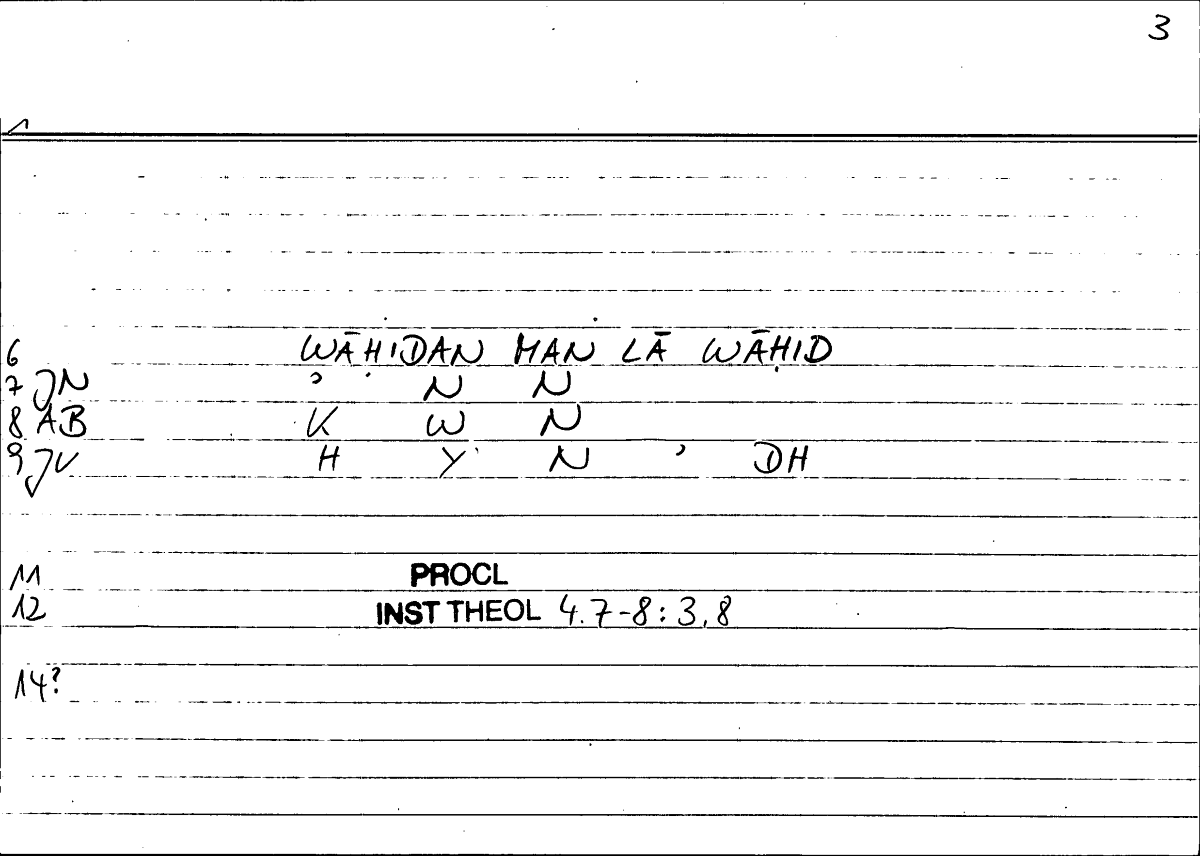 3
1
6 WĀḤIDAN MAN LĀ WĀḤID
7 JN ʾ N N
8 AB K W N
9 JV H Y N ʾ DH
11 PROCL
12 INST THEOL 4.7-8:3,8
14?